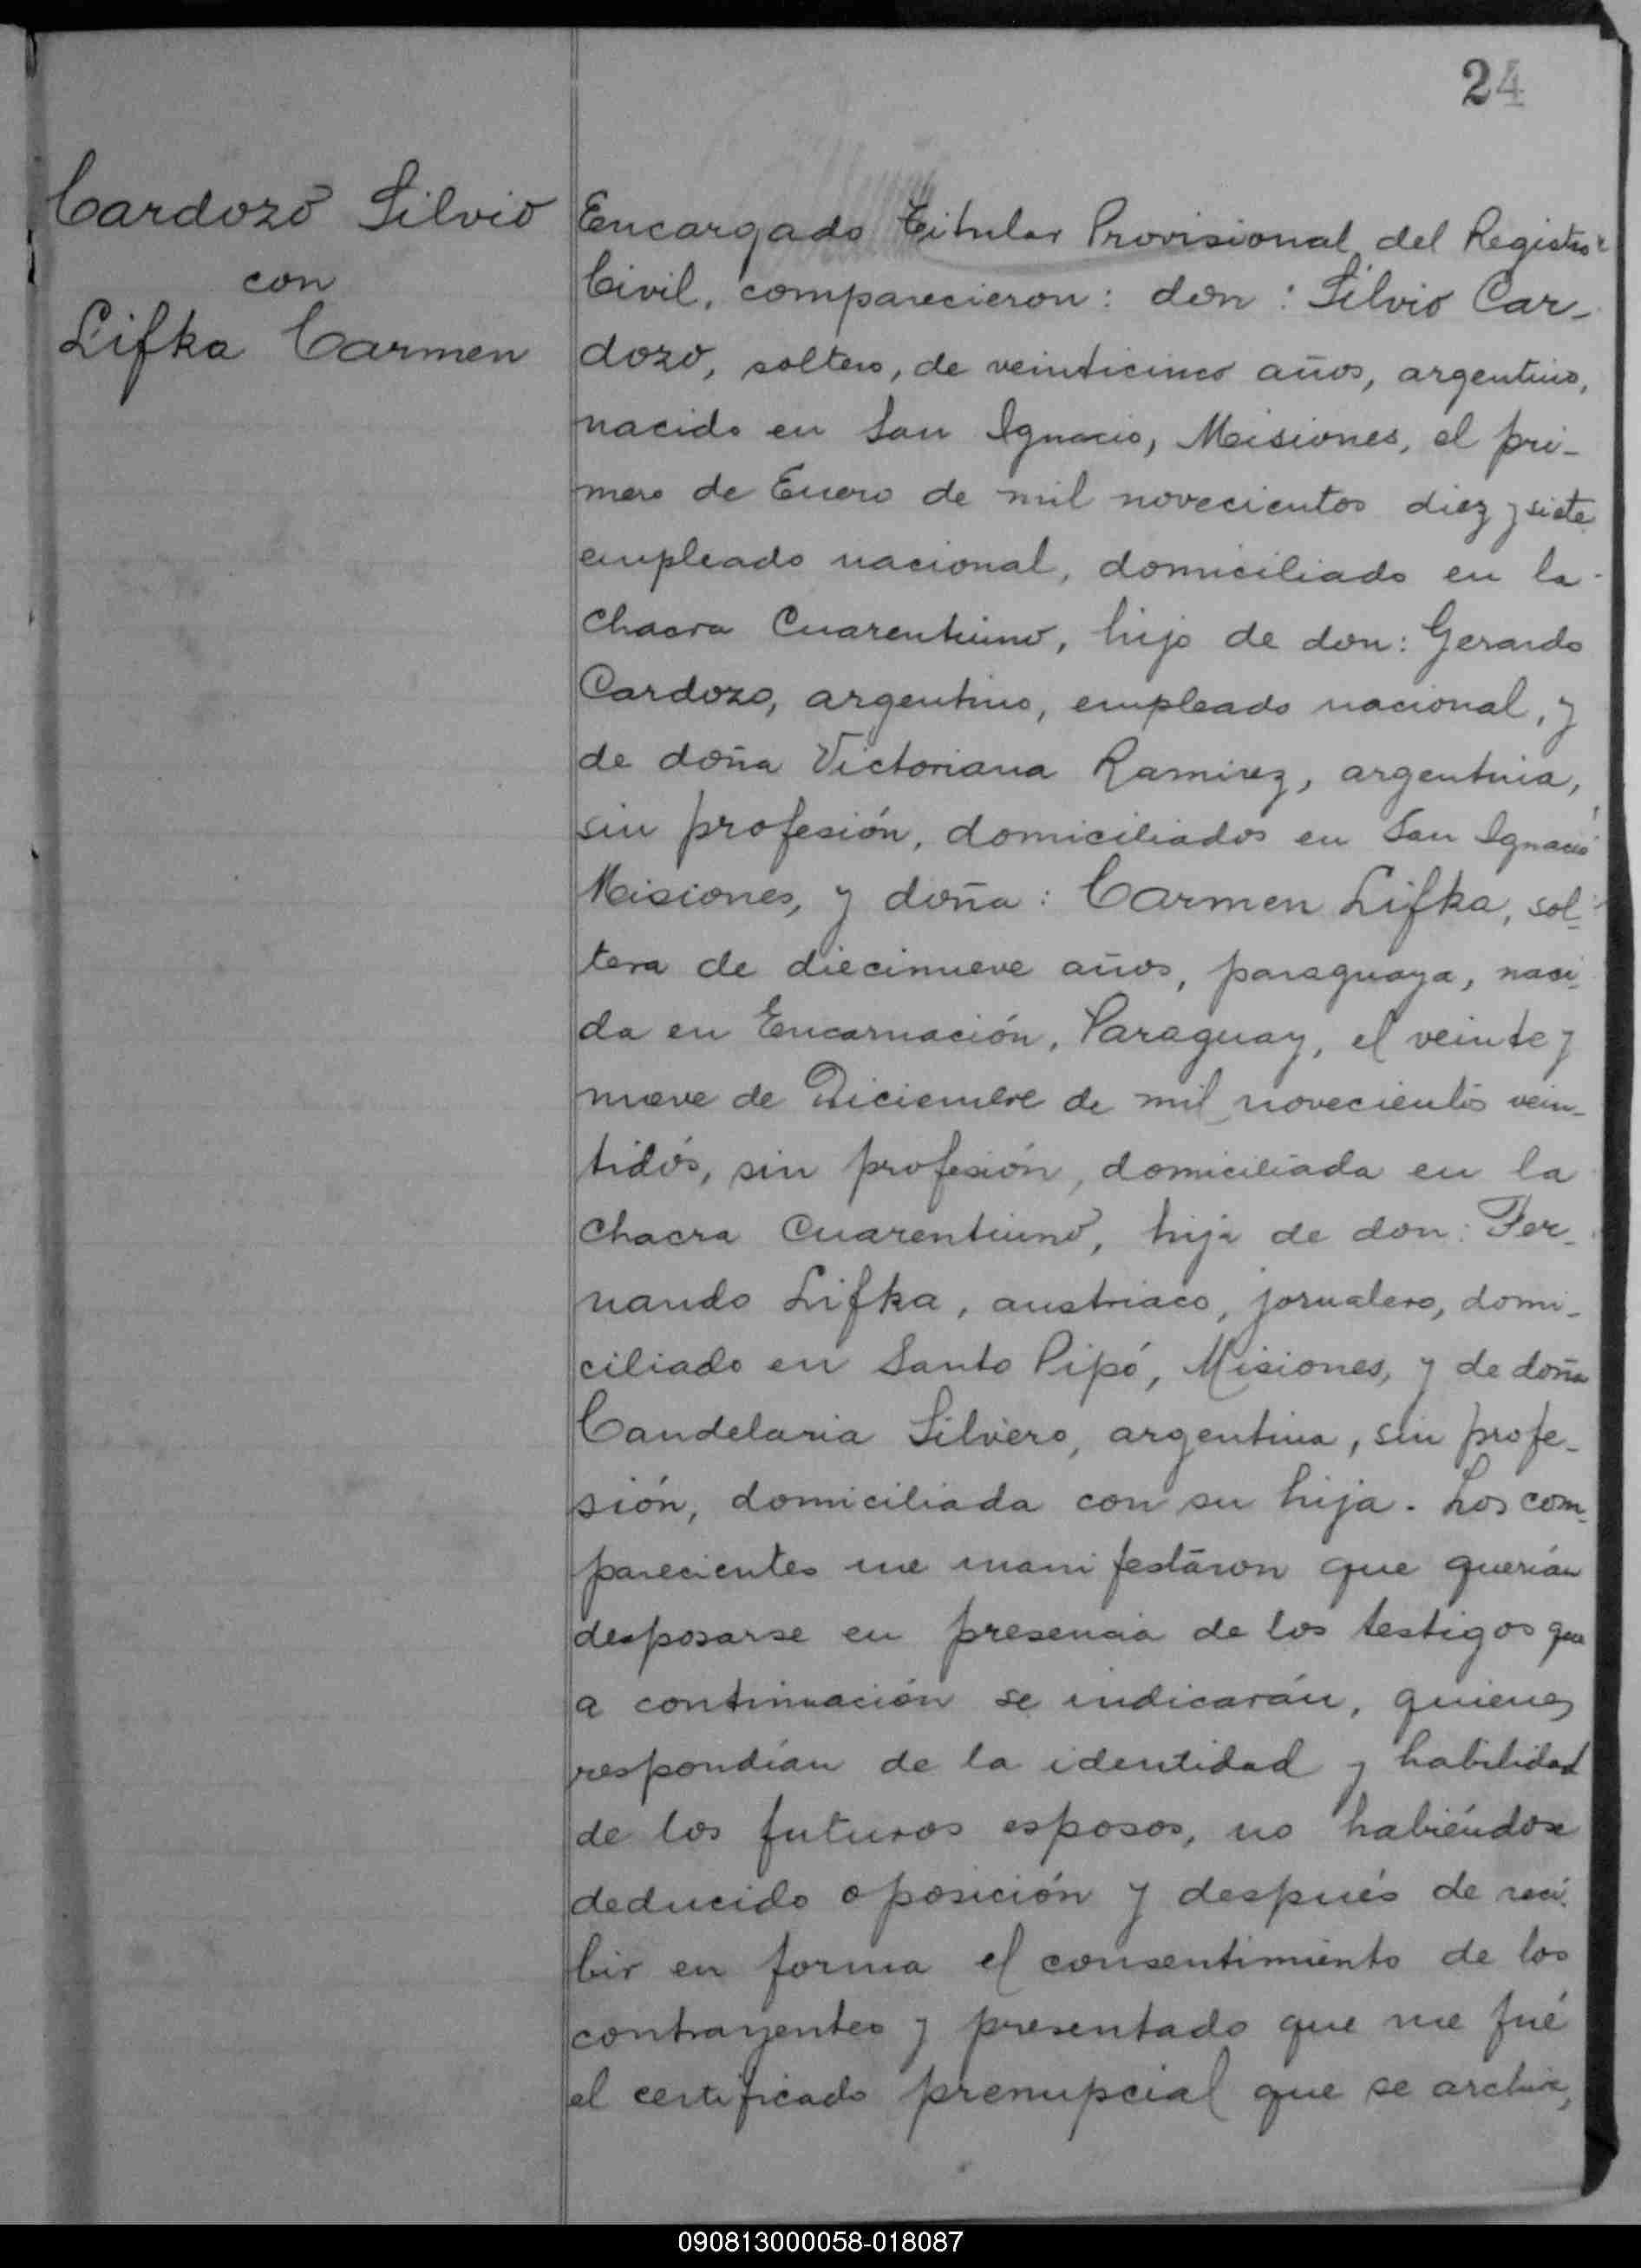 24
Cardozo Silvio
con
Lifka Carmen
Encargado Titular Provisional del Registro
Civil, comparecieron: don: Silvio Car-
dozo, soltero, de veinticinco años, argentino,
nacido en San Ignacio, Misiones, el pri-
mero de Enero de mil novecientos diez y siete
empleado nacional, domiciliado en la
Chacra Cuarentiuno, hijo de don: Gerardo
Cardozo, argentino, empleado nacional, y
de doña Victoriana Ramirez, argentina,
sin profesión, domiciliados en San Ignacio
Misiones, y doña: Carmen Lifka, sol-
tera de diecinueve años, paraguaya, naci-
da en Encarnación, Paraguay, el veinte y
nueve de Diciembre de mil novecientos vein-
tidós, sin profesión, domiciliada en la
Chacra Cuarentiuno, hija de don: Fer-
nando Lifka, austriaco, jornalero, domi-
ciliado en Santo Pipó, Misiones, y de doña
Candelaria Silvero, argentina, sin profe-
sión, domiciliada con su hija. Los com-
parecientes me manifestaron que querían
desposarse en presencia de los testigos que
a continuación se indicarán, quienes
respondían de la identidad y habilidad
de los futuros esposos, no habiéndose
deducido oposición y después de reci-
bir en forma el consentimiento de los
contrayentes y presentado que me fué
el certificado prenupcial que se archiva,
090813000058-018087